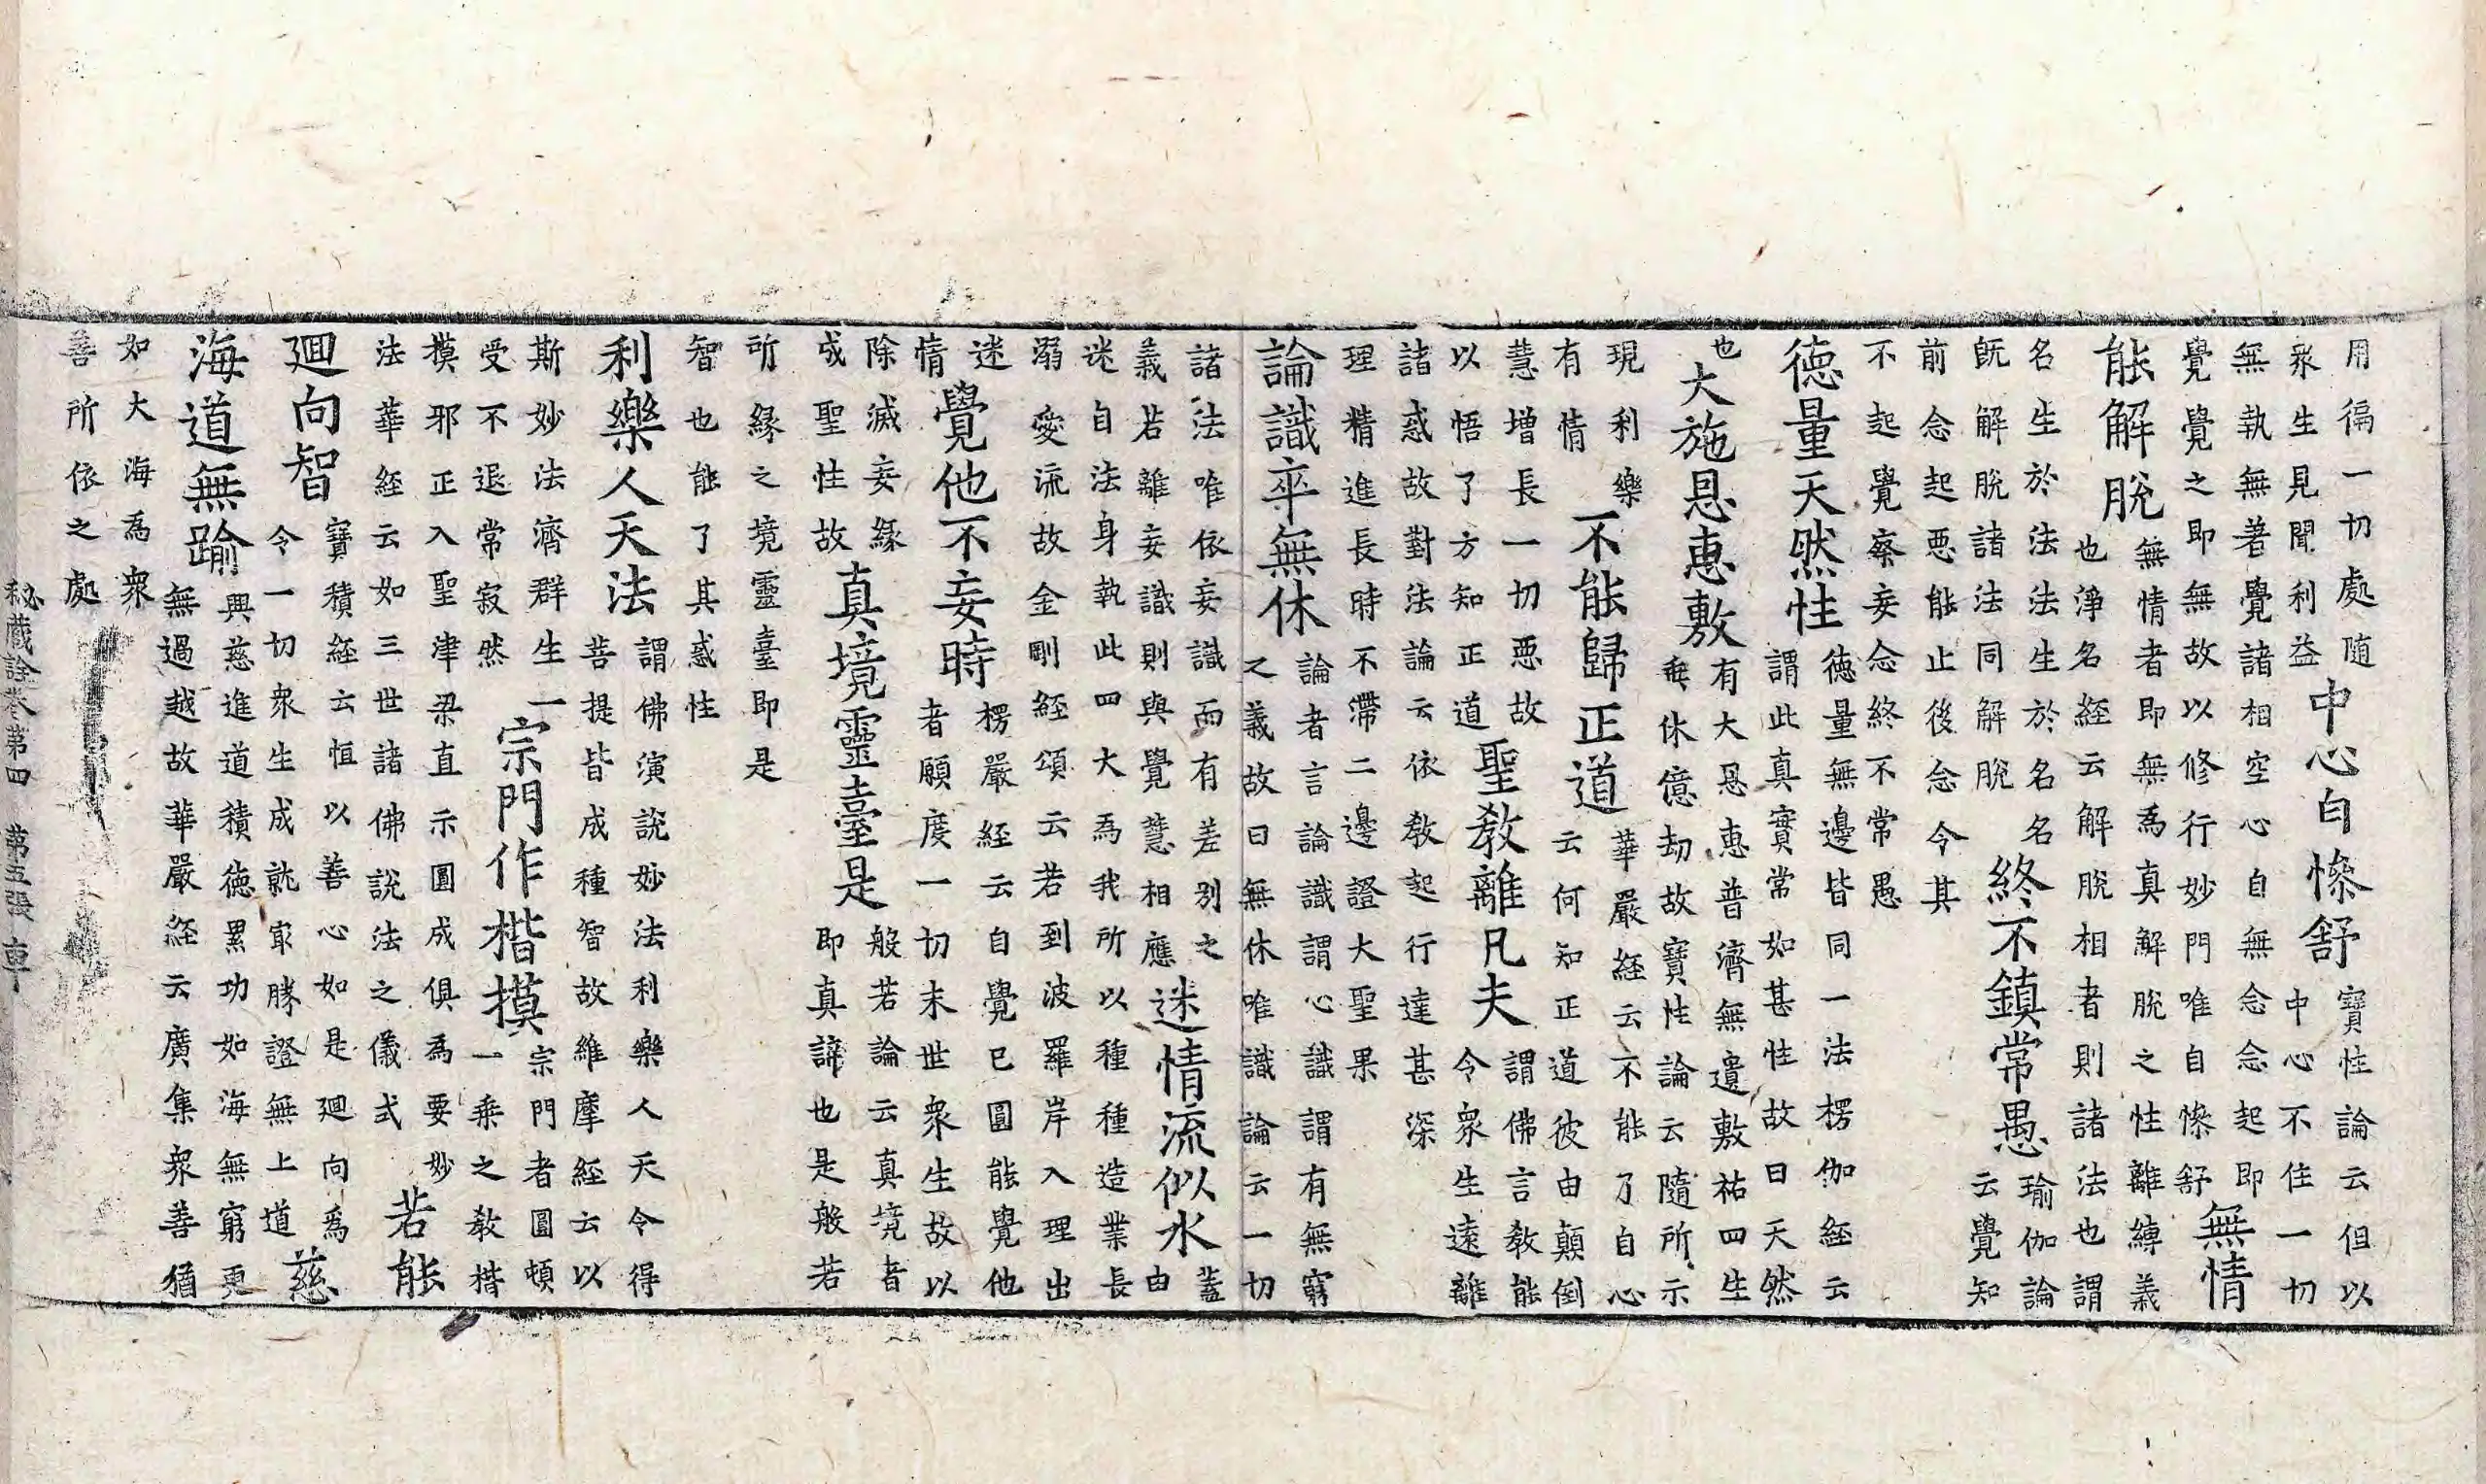 用徧一切處随
衆生見聞利益
中心自慘舒
寶性論云但以
中心不住一切
無執無著覺諸相空心自無念念起即
覺覺之即無故以修行妙門唯自慘舒
無情
能解脫
無情者即無為真解脫之性離縛義
也淨名経云解脫相者則諸法也謂
名生於法法生於名名
既解脫諸法同解脫
終不鎮常愚
瑜伽論
云覺知
前念起惡能止後念令其
不起覺察妄念終不常愚
徳量天然性
徳量無邊皆同一法楞伽経云
謂此真實常如甚性故曰天然
也
大施恩惠敷
有大恩惠普濟無遺敷祐四生
垂休億劫故寶性論云隨所示
現利樂
有情
不能歸正道
華嚴経云不能了自心
云何知正道彼由顛倒
慧增長一切惡故
以悟了方知正道
聖教離凡夫
謂佛言教能
令衆生遠離
諸惑故對法論云依教起行達甚深
理精進長時不滯二邊證大聖果
論識卒無休
論者言論識謂心識謂有無窮
之義故曰無休唯識論云一切
諸法唯依妄識而有差別之
義若離妄識則與覺慧相應
迷情流似水
蓋
由
迷自法身執此四大為我所以種種造業長
溺愛流故金剛経頌云若到波羅岸入理出
迷
情
覺他不妄時
楞嚴経云自覺已圓能覺他
者願度一切末世衆生故以
除滅妄緣
成聖性故
真境靈臺是
般若論云真境者
即真諦也是般若
所縁之境靈臺即是
智也能了其惑性
利樂人天法
謂佛演說妙法利樂人天令得
菩提皆成種智故維摩経云以
斯妙法濟群生一
受不退常寂然
宗門作楷摸
宗門者圓頓
一乘之教楷
摸邪正入聖津梁直示圓成俱為要妙
法華経云如三世諸佛說法之儀式
若能
廻向智
寶積経云恒以善心如是廻向為
令一切衆生成就㝡勝證無上道
慈
海道無踰
興慈進道積徳累功如海無窮更
無過越故華嚴経云廣集衆善猶
如大海為衆
善所依之處
秘蔵詮卷第四 第五張